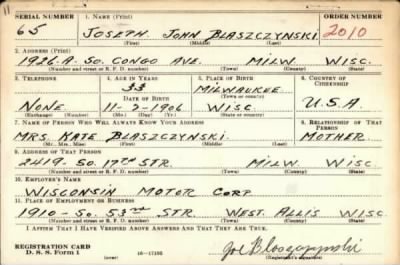 SERIAL NUMBER 1. NAME (Print) ORDER NUMBER
65 JOSEPH JOHN BLASZCZYNSKI 2010
(First) (Middle) (Last)
2. ADDRESS (Print)
1926A. SO. CONGO AVE. MILW. WISC.
(Number and street or R. F. D. number) (Town) (County) (State)
3. TELEPHONE 4. AGE IN YEARS 5. PLACE OF BIRTH 6. COUNTRY OF CITIZENSHIP
33 MILWAUKEE
DATE OF BIRTH (Town or county)
NONE 11-2-1906 WISC. U.S.A.
(Exchange) (Number) (Mo.) (Day) (Yr.) (State or country)
7. NAME OF PERSON WHO WILL ALWAYS KNOW YOUR ADDRESS 8. RELATIONSHIP OF THAT PERSON
MRS. KATE BLASZCZYNSKI. MOTHER
(Mr., Mrs., Miss) (First) (Middle) (Last)
9. ADDRESS OF THAT PERSON
2419. SO. 17TH STR. MILW. WISC.
(Number and street or R. F. D. number) (Town) (County) (State)
10. EMPLOYER'S NAME
WISCONSIN MOTOR CORP
11. PLACE OF EMPLOYMENT OR BUSINESS
1910-SO. 53RD. STR. WEST. ALLIS WISC
(Number and street or R. F. D. number) (Town) (County) (State)
I AFFIRM THAT I HAVE VERIFIED ABOVE ANSWERS AND THAT THEY ARE TRUE.
REGISTRATION CARD
D. S. S. Form 1 (over) 16-17105 Joe Blaszczynski
(Registrant's signature)